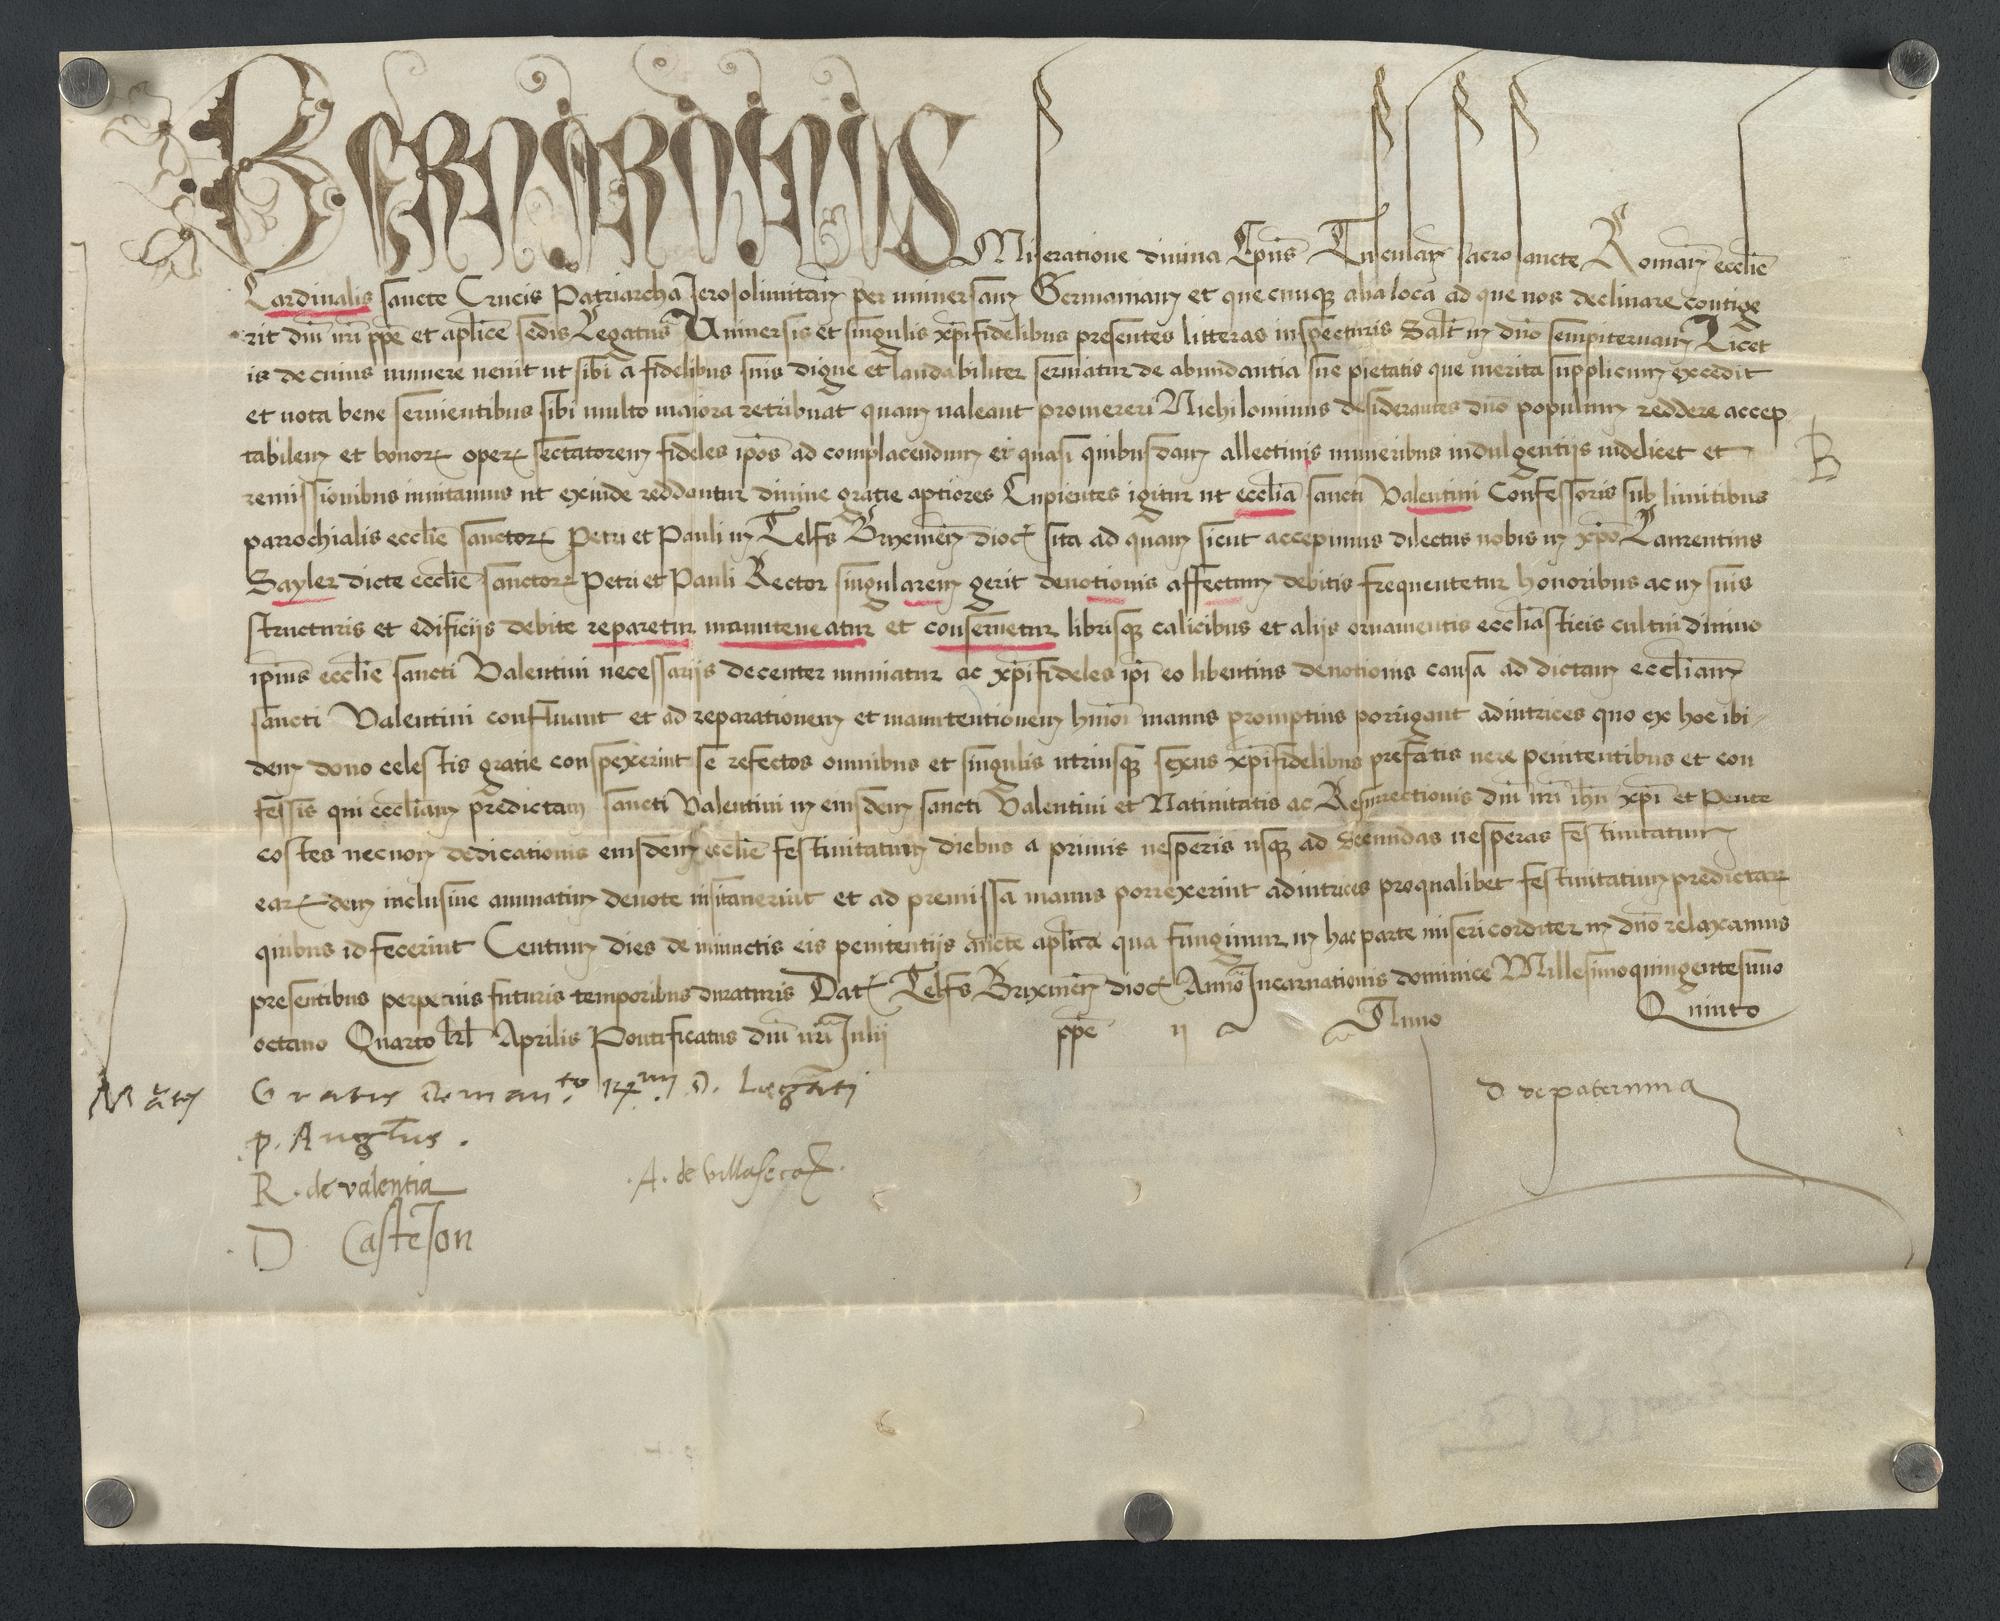 BERNARDINUS Miseratione divina Ep̄us Tusculan̄ sacrosancte Roman̄ eccl̄ie
Cardinalis sancte Crucis Patriarcha Jerosolimitan̄ per universam Germaniam et quecunq̨ alia loca ad que nos declinare contige
rit dn̄i nr̄i pp̄e et apl̄ice sedis Legatus Universis et singulis xp̄ifidelibus presentes litteras inspecturis Salt̄ in dn̄o sempiternam Licet
is de cuius munere venit ut sibi a fidelibus suis digne et laudabiliter serviatur de abundantia sue pietatis que merita supplicum excedit
et vota bene servientibus sibi multo maiora retribuat quam valeant promereri Nichilominus desiderantes dn̄o populum reddere accep
tabilem et bonorꝝ operꝝ sectatorem fideles ip̄os ad complacendum ei quasi quibusdam allectivis muneribus indulgentijs videlicet et
remissionibus invitamus ut exinde reddantur divine gratie aptiores Cupientes igitur ut eccl̄ia sancti Valentini Confessoris sub limitibus
parrochialis eccl̄ie sanctorꝝ Petri et Pauli in Telfs Brixinen̄ dioc̄ sita ad quam sicut accepimus dilectus nobis in xp̄o Laurentius
Sayler dicte eccl̄ie sanctorꝝ Petri et Pauli Rector singularem gerit devotionis affectum debitis frequentetur honoribus ac in suis
structuris et edificijs debite reparetur manuteneatur et conservetur librisq̨ calicibus et alijs ornamentis eccl̄iasticis cultui divino
ip̄ius eccl̄ie sancti Valentini necessarijs decenter muniatur ac xp̄ifideles ip̄i eo libentius devotionis causa ad dictam eccl̄iam
sancti Valentini confluant et ad reparationem et manutentionem hm̄oi manus promptius porrigant adiutrices quo ex hoc ibi
dem dono celestis gratie conspexerint se refectos omnibus et singulis utriusq̨ sexus xp̄ifidelibus prefatis vere penitentibus et con
fessis qui eccl̄iam predictam sancti Valentini in eiusdem sancti Valentini et Nativitatis ac Resurrectionis dn̄i nr̄i ih̄u xp̄i et Pente
costes necnon dedicationis eiusdem eccl̄ie festivitatum diebus a primis vesperis usq̨ ad secundas vesperas festivitatum
earꝝdem inclusive annuatim devote visitaverint et ad premissa manus porrexerint adiutrices pro qualibet festivitatum predictarꝝ
quibus id fecerint Centum dies de iniunctis eis penitentijs aucte apl̄ica qua fungimur in hac parte misericorditer in dn̄o relaxamus
presentibus perpetuis futuris temporibus duraturis Dat̄ Telfs Brixinen̄ dioc̄ Anno Incarnationis dominice Millesimoquingentesimo
octavo Quarto kl̄ Aprilis Pontificatus dn̄i nr̄i Julij pp̄e ij Anno Quinto
B
Gratis de man.to R.mi D. Legati
p. Angl̄us.
R. de valentia
A. de villaseca
D Casteion
D. de paternina